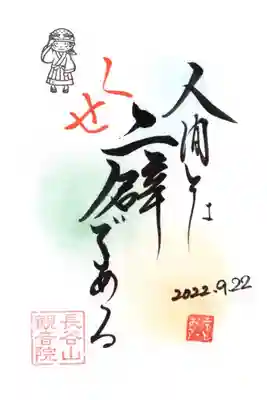 人間とは
くせ
癖である
2022.9.22
長谷山
観音院